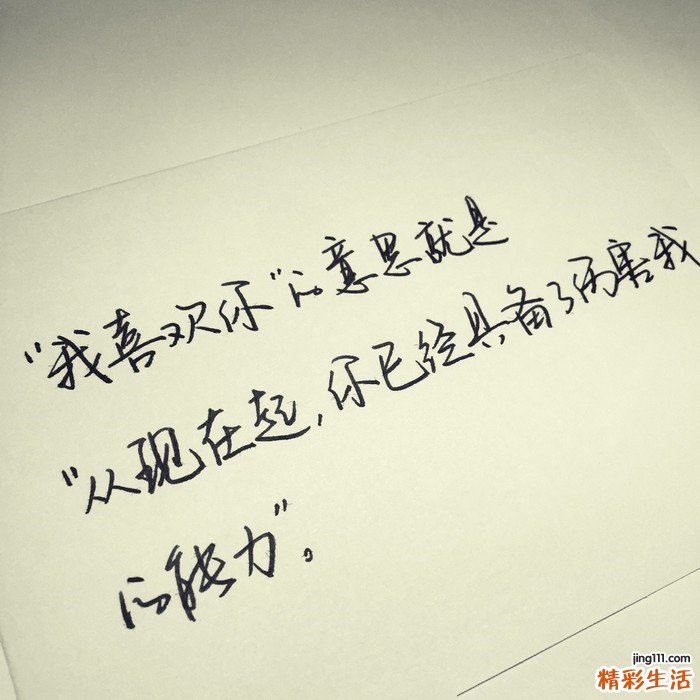 “我喜欢你”的意思就是
“从现在起，你已经具备了伤害我
的能力”。
jing111.com
精彩生活